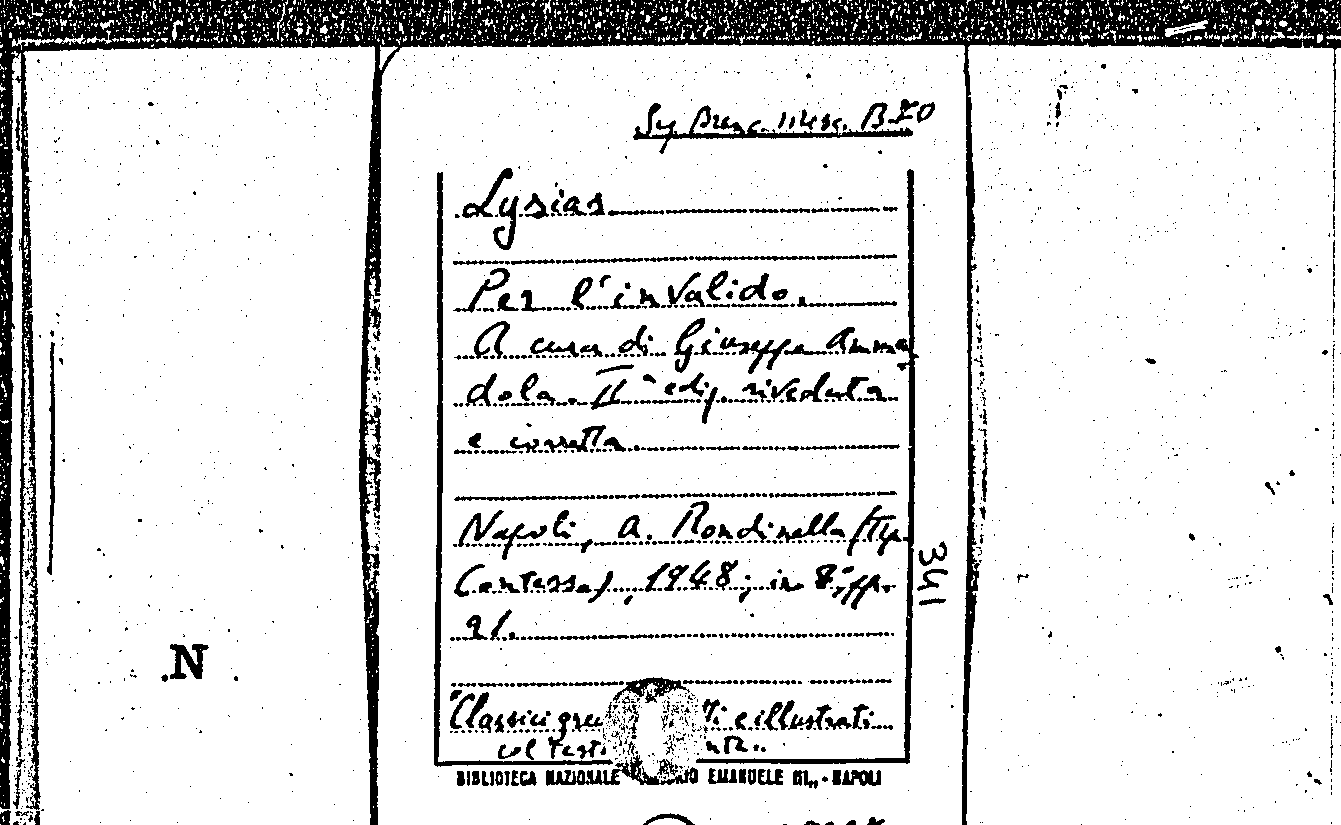 B. 20
Lysias
Per l'invalido.
A cura di Giuseppe Amma
dola. IIª ediz. riveduta
e corretta.
Napoli, A. Rondinella (Tip.
Contessa), 1948; in 8°, pp.
91.
341
N
"Classici gre ti e illustrati
col test nte..
BIBLIOTECA NAZIONALE EMANUELE III,, - NAPOLI